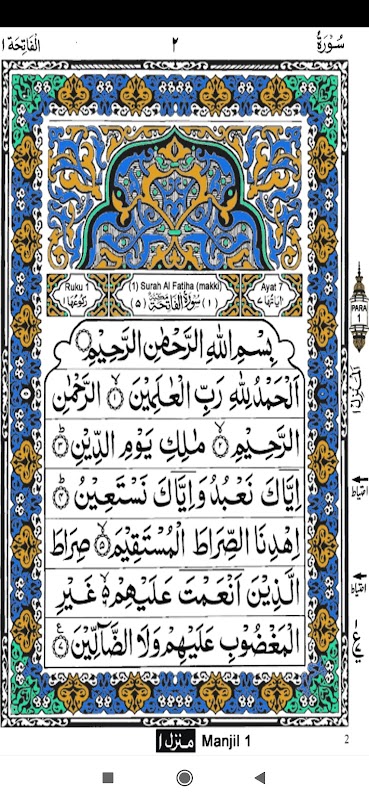 سُوْرَةُ ٢ اَلْفَاتِحَة ١
Ruku 1 (1) Surah Al Fatiha (makki) Ayat 7
رُكُوْعُهَا ١ (١) سُوْرَةُ الْفَاتِحَةِ مَكِّيَّةٌ (٥) اٰيَاتُهَا ٧
بِسْمِ اللهِ الرَّحْمٰنِ الرَّحِيْمِ
اَلْحَمْدُ لِلّٰهِ رَبِّ الْعٰلَمِيْنَ ۙ﴿١﴾ الرَّحْمٰنِ
الرَّحِيْمِ ۙ﴿٢﴾ مٰلِكِ يَوْمِ الدِّيْنِ ﴿٣﴾
اِيَّاكَ نَعْبُدُ وَاِيَّاكَ نَسْتَعِيْنُ ﴿٤﴾
اِهْدِنَا الصِّرَاطَ الْمُسْتَقِيْمَ ۙ﴿٥﴾ صِرَاطَ
الَّذِيْنَ اَنْعَمْتَ عَلَيْهِمْ ۙ۬ غَيْرِ
الْمَغْضُوْبِ عَلَيْهِمْ وَلَا الضَّآلِّيْنَ ﴿٧﴾
PARA
1
اَلْمَنْزِل ١
احتیاط
احتیاط
ع
منزل ١ Manjil 1
2